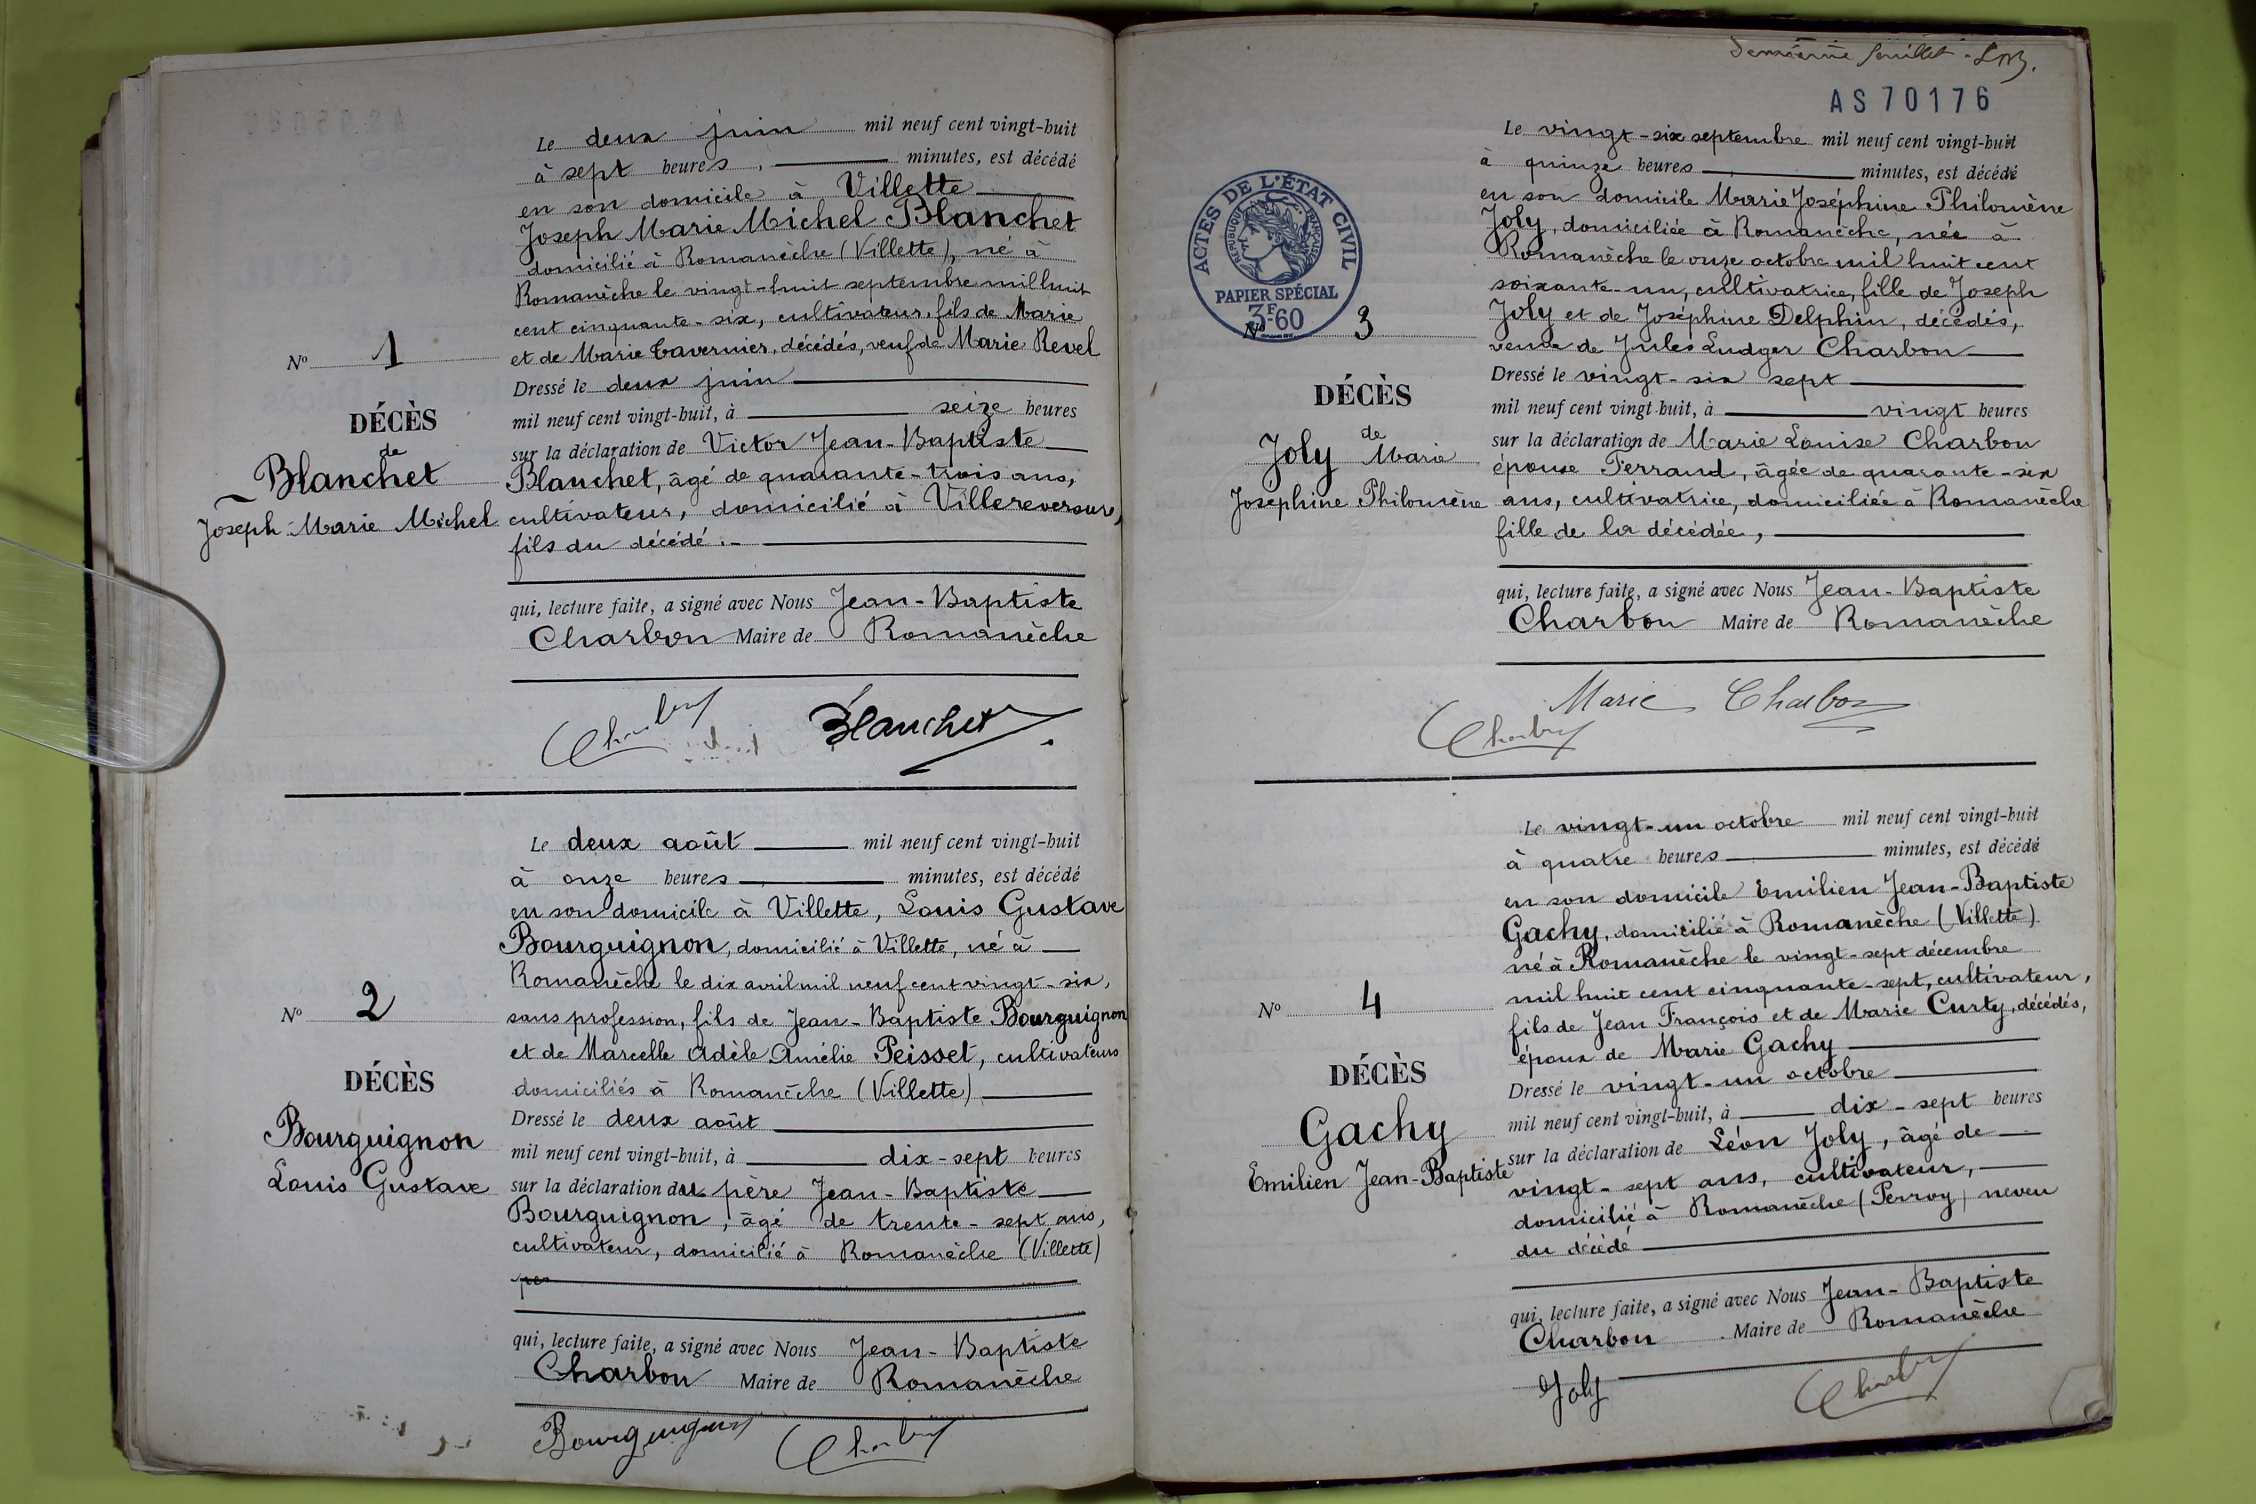 Le deux juin mil neuf cent vingt-huit
à sept heures, minutes, est décédé
en son domicile à Villette
Joseph Marie Michel Blanchet
domicilié à Romanèche (Villette), né à
Romanèche le vingt-huit septembre mil huit
cent cinquante-six, cultivateur, fils de Marie
et de Marie Tavernier, décédés, veuf de Marie Revel
Nº 1
Dressé le deux juin
mil neuf cent vingt-huit, à seize heures
DÉCÈS
de
sur la déclaration de Victor Jean-Baptiste
Blanchet
Blanchet, âgé de quarante-trois ans,
Joseph Marie Michel
cultivateur, domicilié à Villereversure,
fils du décédé.
qui, lecture faite, a signé avec Nous Jean-Baptiste
Charbon Maire de Romanèche
Blanchet
Le deux août mil neuf cent vingt-huit
à onze heures minutes, est décédé
en son domicile à Villette, Louis Gustave
Bourguignon, domicilié à Villette, né à
Romanèche le dix avril mil neuf cent vingt-six,
Nº 2
sans profession, fils de Jean-Baptiste Bourguignon
et de Marcelle Adèle Amélie Peisset, cultivateurs
DÉCÈS
domiciliés à Romanèche (Villette)
Dressé le deux août
Bourguignon
mil neuf cent vingt-huit, à dix-sept heures
Louis Gustave
sur la déclaration du père Jean-Baptiste
Bourguignon, âgé de trente-sept ans,
cultivateur, domicilié à Romanèche (Villette)
qui, lecture faite, a signé avec Nous Jean-Baptiste
Charbon Maire de Romanèche
Bourguignon
feuillet
AS 70176
Le vingt-six septembre mil neuf cent vingt-huit
à quinze heures minutes, est décédé
en son domicile Marie Joséphine Philomène
Joly, domiciliée à Romanèche, née à
Romanèche le onze octobre mil huit cent
soixante-un, cultivatrice, fille de Joseph
Joly et de Joséphine Delphin, décédés,
veuve de Jules Ludger Charbon
ACTES DE L'ÉTAT CIVIL
RÉPUBLIQUE FRANÇAISE
PAPIER SPÉCIAL
3F60
Nº 3
Dressé le vingt-six sept
mil neuf cent vingt-huit, à vingt heures
DÉCÈS
de
sur la déclaration de Marie Louise Charbon
Joly Marie
épouse Ferrand, âgée de quarante-six
Joséphine Philomène
ans, cultivatrice, domiciliée à Romanèche
fille de la décédée,
qui, lecture faite, a signé avec Nous Jean-Baptiste
Charbon Maire de Romanèche
Marie Charbon
Le vingt-un octobre mil neuf cent vingt-huit
à quatre heures minutes, est décédé
en son domicile Emilien Jean-Baptiste
Gachy, domicilié à Romanèche (Villette)
né à Romanèche le vingt-sept décembre
mil huit cent cinquante-sept, cultivateur,
Nº 4
fils de Jean François et de Marie Curty, décédés,
époux de Marie Gachy
DÉCÈS
Dressé le vingt-un octobre
mil neuf cent vingt-huit, à dix-sept heures
Gachy
sur la déclaration de Léon Joly, âgé de
Emilien Jean-Baptiste
vingt-sept ans, cultivateur,
domicilié à Romanèche (Perroy) neveu
du décédé
qui, lecture faite, a signé avec Nous Jean-Baptiste
Charbon Maire de Romanèche
Joly